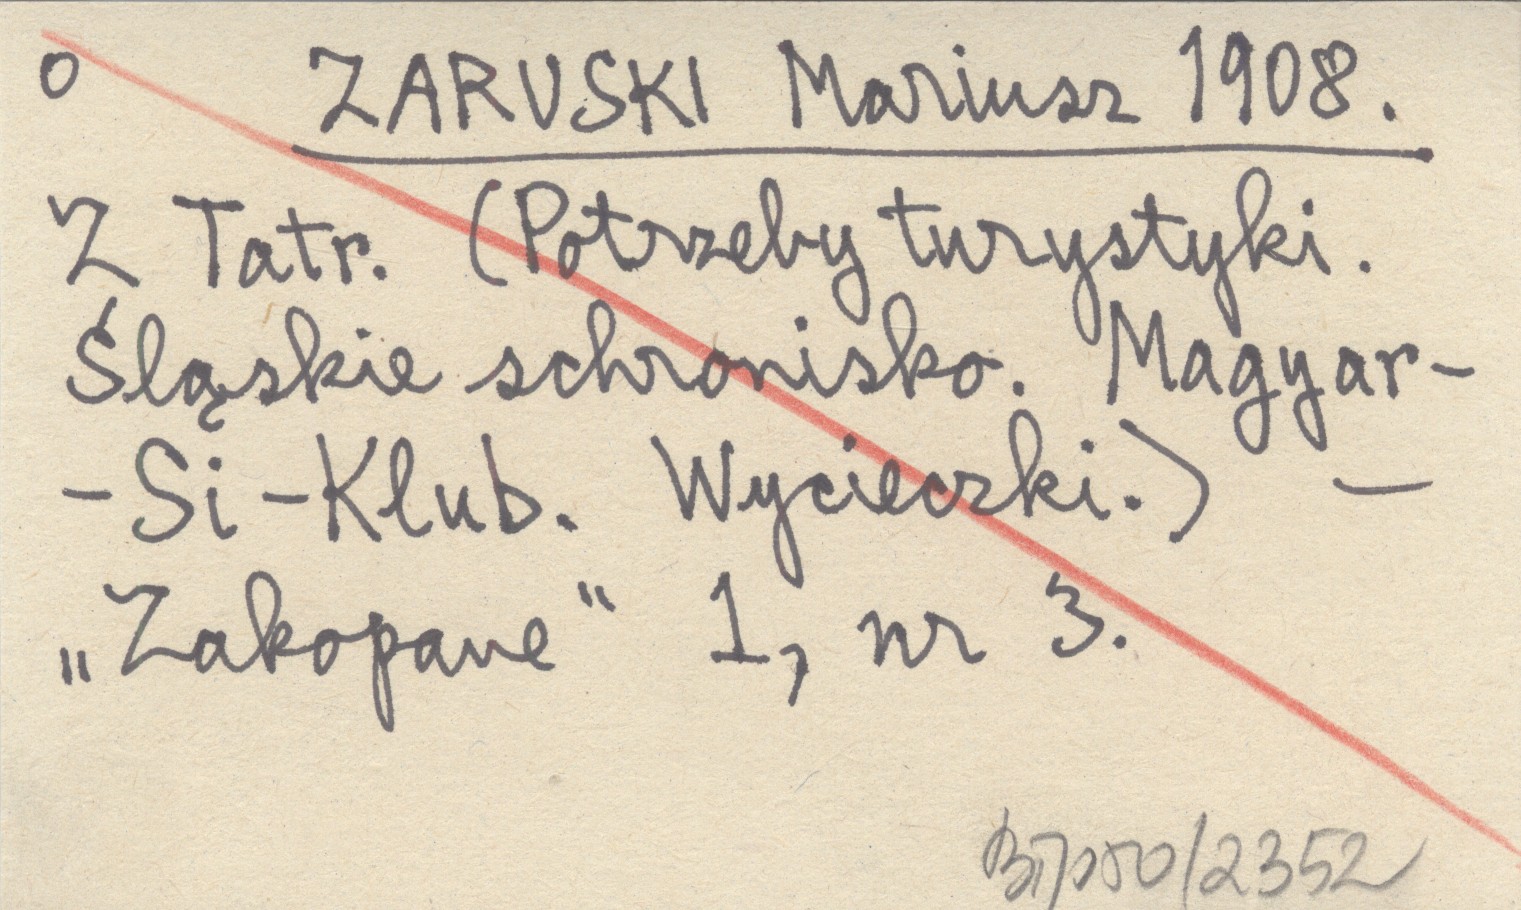 o ZARUSKI Mariusz 1908.
Z Tatr. (Potrzeby turystyki.
Śląskie schronisko. Magyar-
-Si-Klub. Wycieczki.) —
„Zakopane" 1, nr 3.
/2352